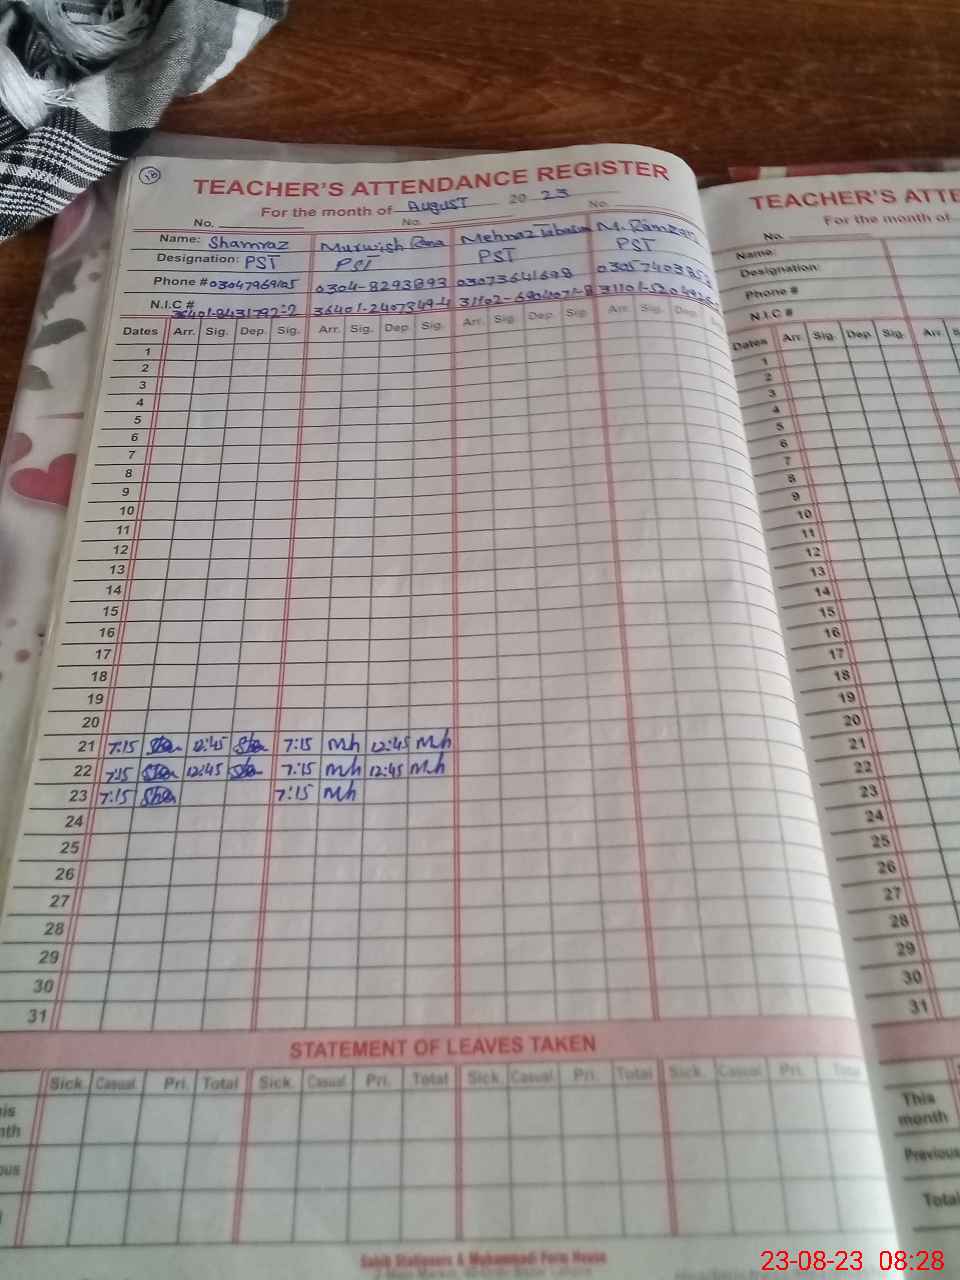 18
TEACHER'S ATTENDANCE REGISTER
For the month of August 20 23
No. No. No.
Name: Shamraz Murwish Rana Mehnaz M. Ramzan
Designation: PST PST PST PST
Phone # 03047969105 0304-8293893 03073641698
N.I.C # 36401-8431792-2 36401-2407349-4
Dates Arr. Sig. Dep. Sig. Arr. Sig. Dep. Sig. Arr. Sig. Dep. Sig. Arr. Sig. Dep.
1
2
3
4
5
6
7
8
9
10
11
12
13
14
15
16
17
18
19
20
21 7:15 Sha 12:45 Sha 7:15 Mh 12:45 Mh
22 7:15 Sha 12:45 Sha 7:15 Mh 12:45 Mh
23 7:15 Sha 7:15 Mh
24
25
26
27
28
29
30
31
STATEMENT OF LEAVES TAKEN
Sick. Casual Pri. Total Sick. Casual Pri. Total Sick. Casual Pri. Total Sick. Casual Pri. Total
Sahib Stationers & Muhammadi Form House
TEACHER'S ATTE
For the month of
No.
Name:
Designation:
Phone #
N.I.C #
Dates Arr. Sig. Dep. Sig. Arr.
1
2
3
4
5
6
7
8
9
10
11
12
13
14
15
16
17
18
19
20
21
22
23
24
25
26
27
28
29
30
31
This
month
Previous
Total
23-08-23 08:28